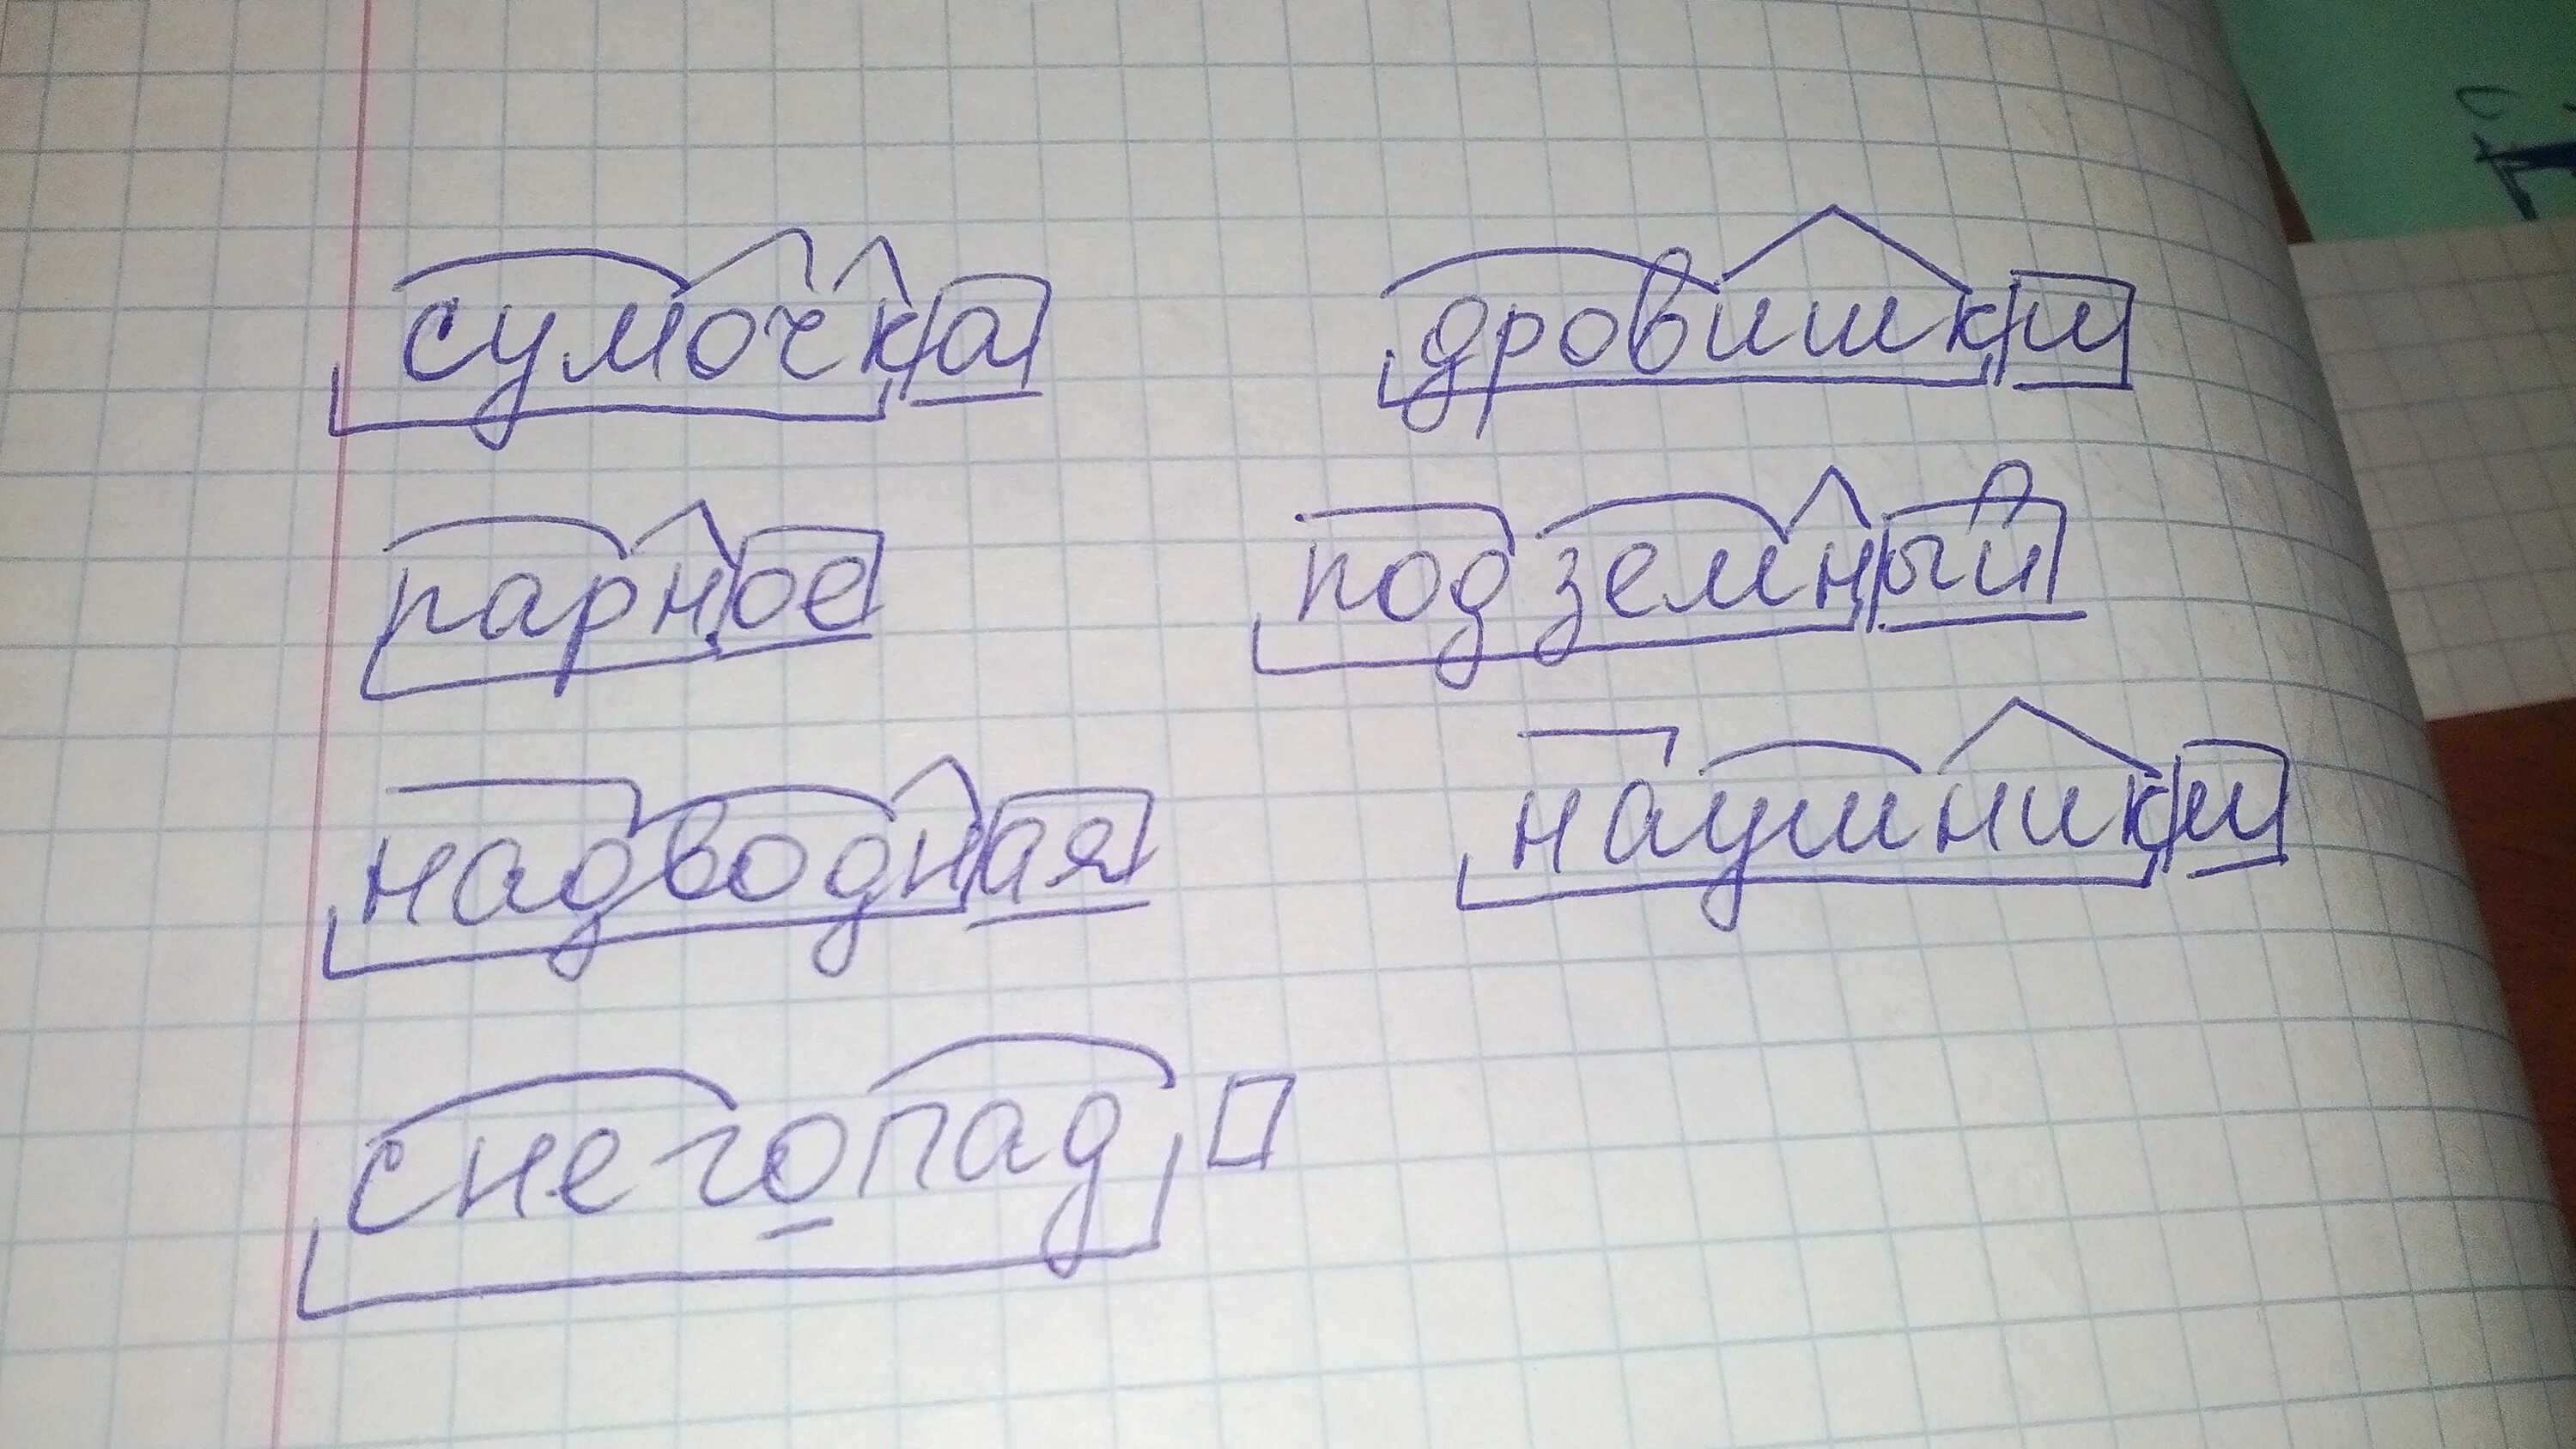 сумочка дровишки
парное подземный
надводная наушники
снегопад